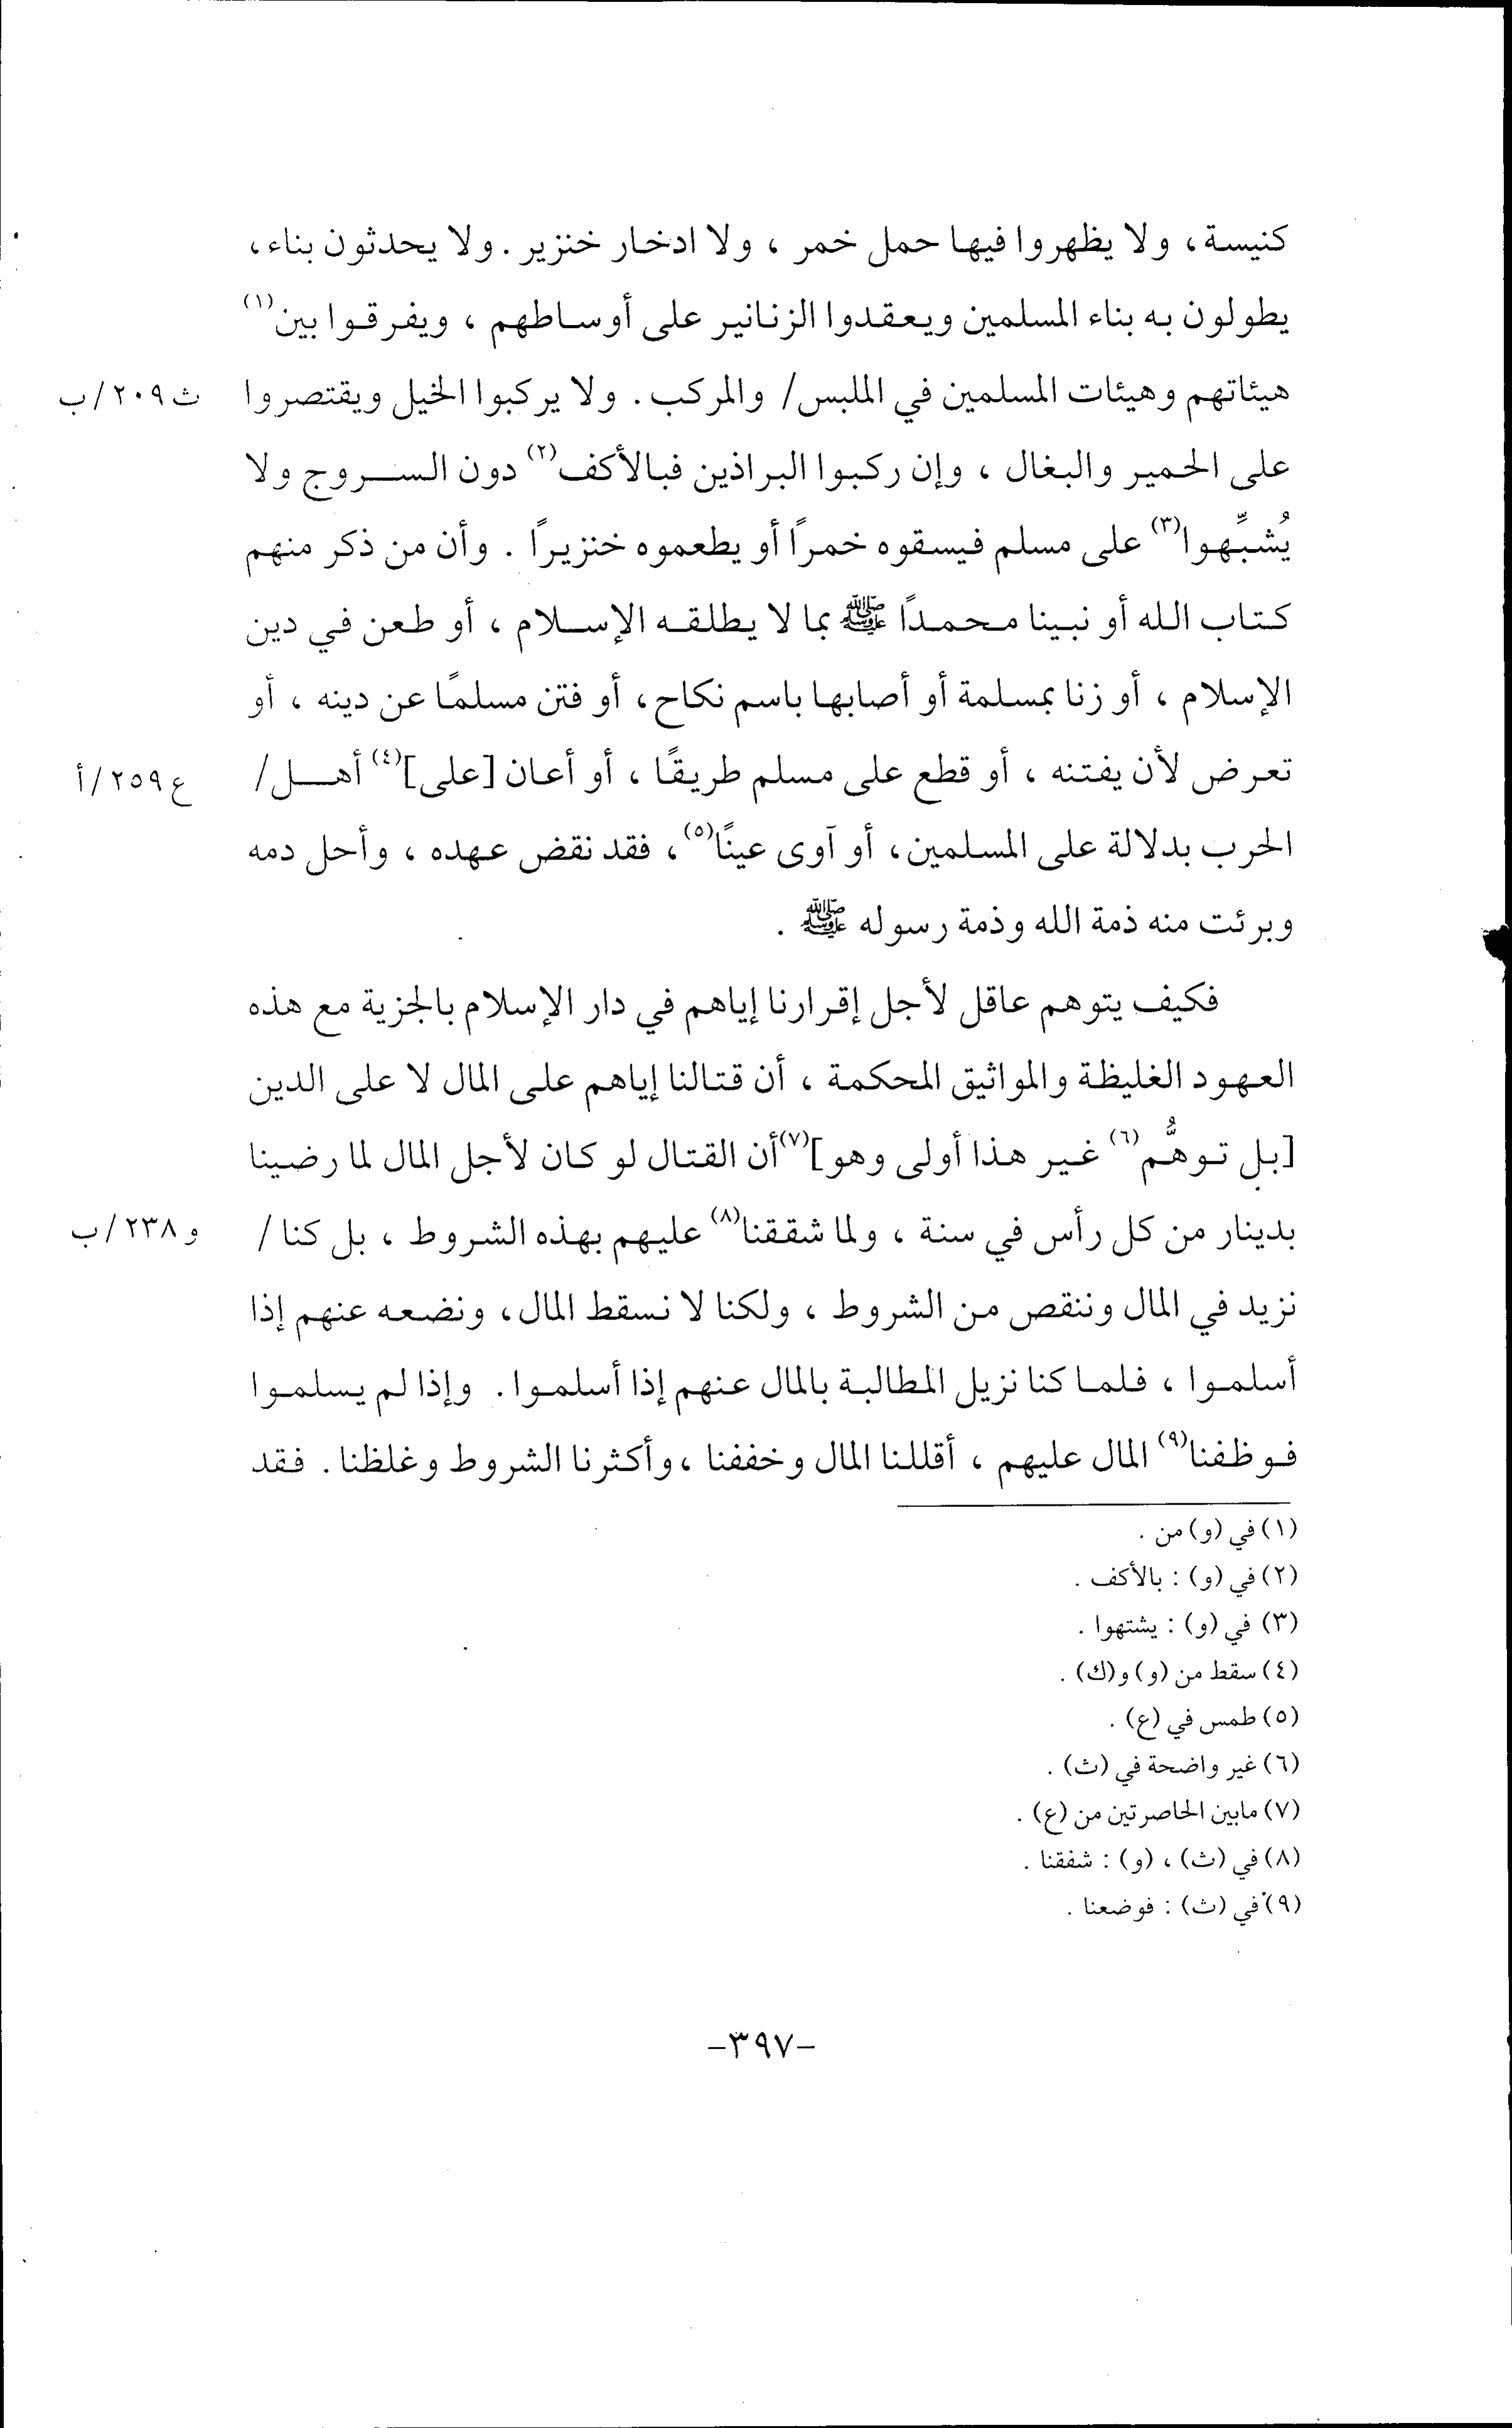 كنيسة، ولا يظهروا فيها حمل خمر ، ولا ادخار خنزير . ولا يحدثون بناء،
يطولون به بناء المسلمين ويعقدوا الزنانير على أوساطهم ، ويفرقوا بين(١)
هيئاتهم وهيئات المسلمين في الملبس/ والمركب . ولا يركبوا الخيل ويقتصروا ث٢٠٩/ب
على الحمير والبغال ، وإن ركبوا البراذين فبالأكف(٢) دون السروج ولا
يُشبِّهوا(٣) على مسلم فيسقوه خمرًا أو يطعموه خنزيرًا . وأن من ذكر منهم
كتاب الله أو نبينا محمدًا ﷺ بما لا يطلقه الإسلام ، أو طعن في دين
الإسلام ، أو زنا بمسلمة أو أصابها باسم نكاح، أو فتن مسلمًا عن دينه ، أو
تعرض لأن يفتنه ، أو قطع على مسلم طريقًا ، أو أعان [على](٤) أهل/ ع٢٥٩/أ
الحرب بدلالة على المسلمين، أو آوى عينًا(٥)، فقد نقض عهده ، وأحل دمه
وبرئت منه ذمة الله وذمة رسوله ﷺ .
فكيف يتوهم عاقل لأجل إقرارنا إياهم في دار الإسلام بالجزية مع هذه
العهود الغليظة والمواثيق المحكمة ، أن قتالنا إياهم على المال لا على الدين
[بل توهُّم(٦) غير هذا أولى وهو](٧)أن القتال لو كان لأجل المال لما رضينا
بدينار من كل رأس في سنة ، ولما شققنا(٨) عليهم بهذه الشروط ، بل كنا / و٢٣٨/ب
نزيد في المال وننقص من الشروط ، ولكنا لا نسقط المال، ونضعه عنهم إذا
أسلموا ، فلما كنا نزيل المطالبة بالمال عنهم إذا أسلموا . وإذا لم يسلموا
فوظفنا(٩) المال عليهم ، أقللنا المال وخففنا ، وأكثرنا الشروط وغلظنا . فقد
(١) في (و) من .
(٢) في (و) : بالأكف .
(٣) في (و) : يشتهوا .
(٤) سقط من (و) و(ك) .
(٥) طمس في (ع) .
(٦) غير واضحة في (ث) .
(٧) مابين الحاصرتين من (ع) .
(٨) في (ث) ، (و) : شفقنا .
(٩) في (ث) : فوضعنا .
-٣٩٧-